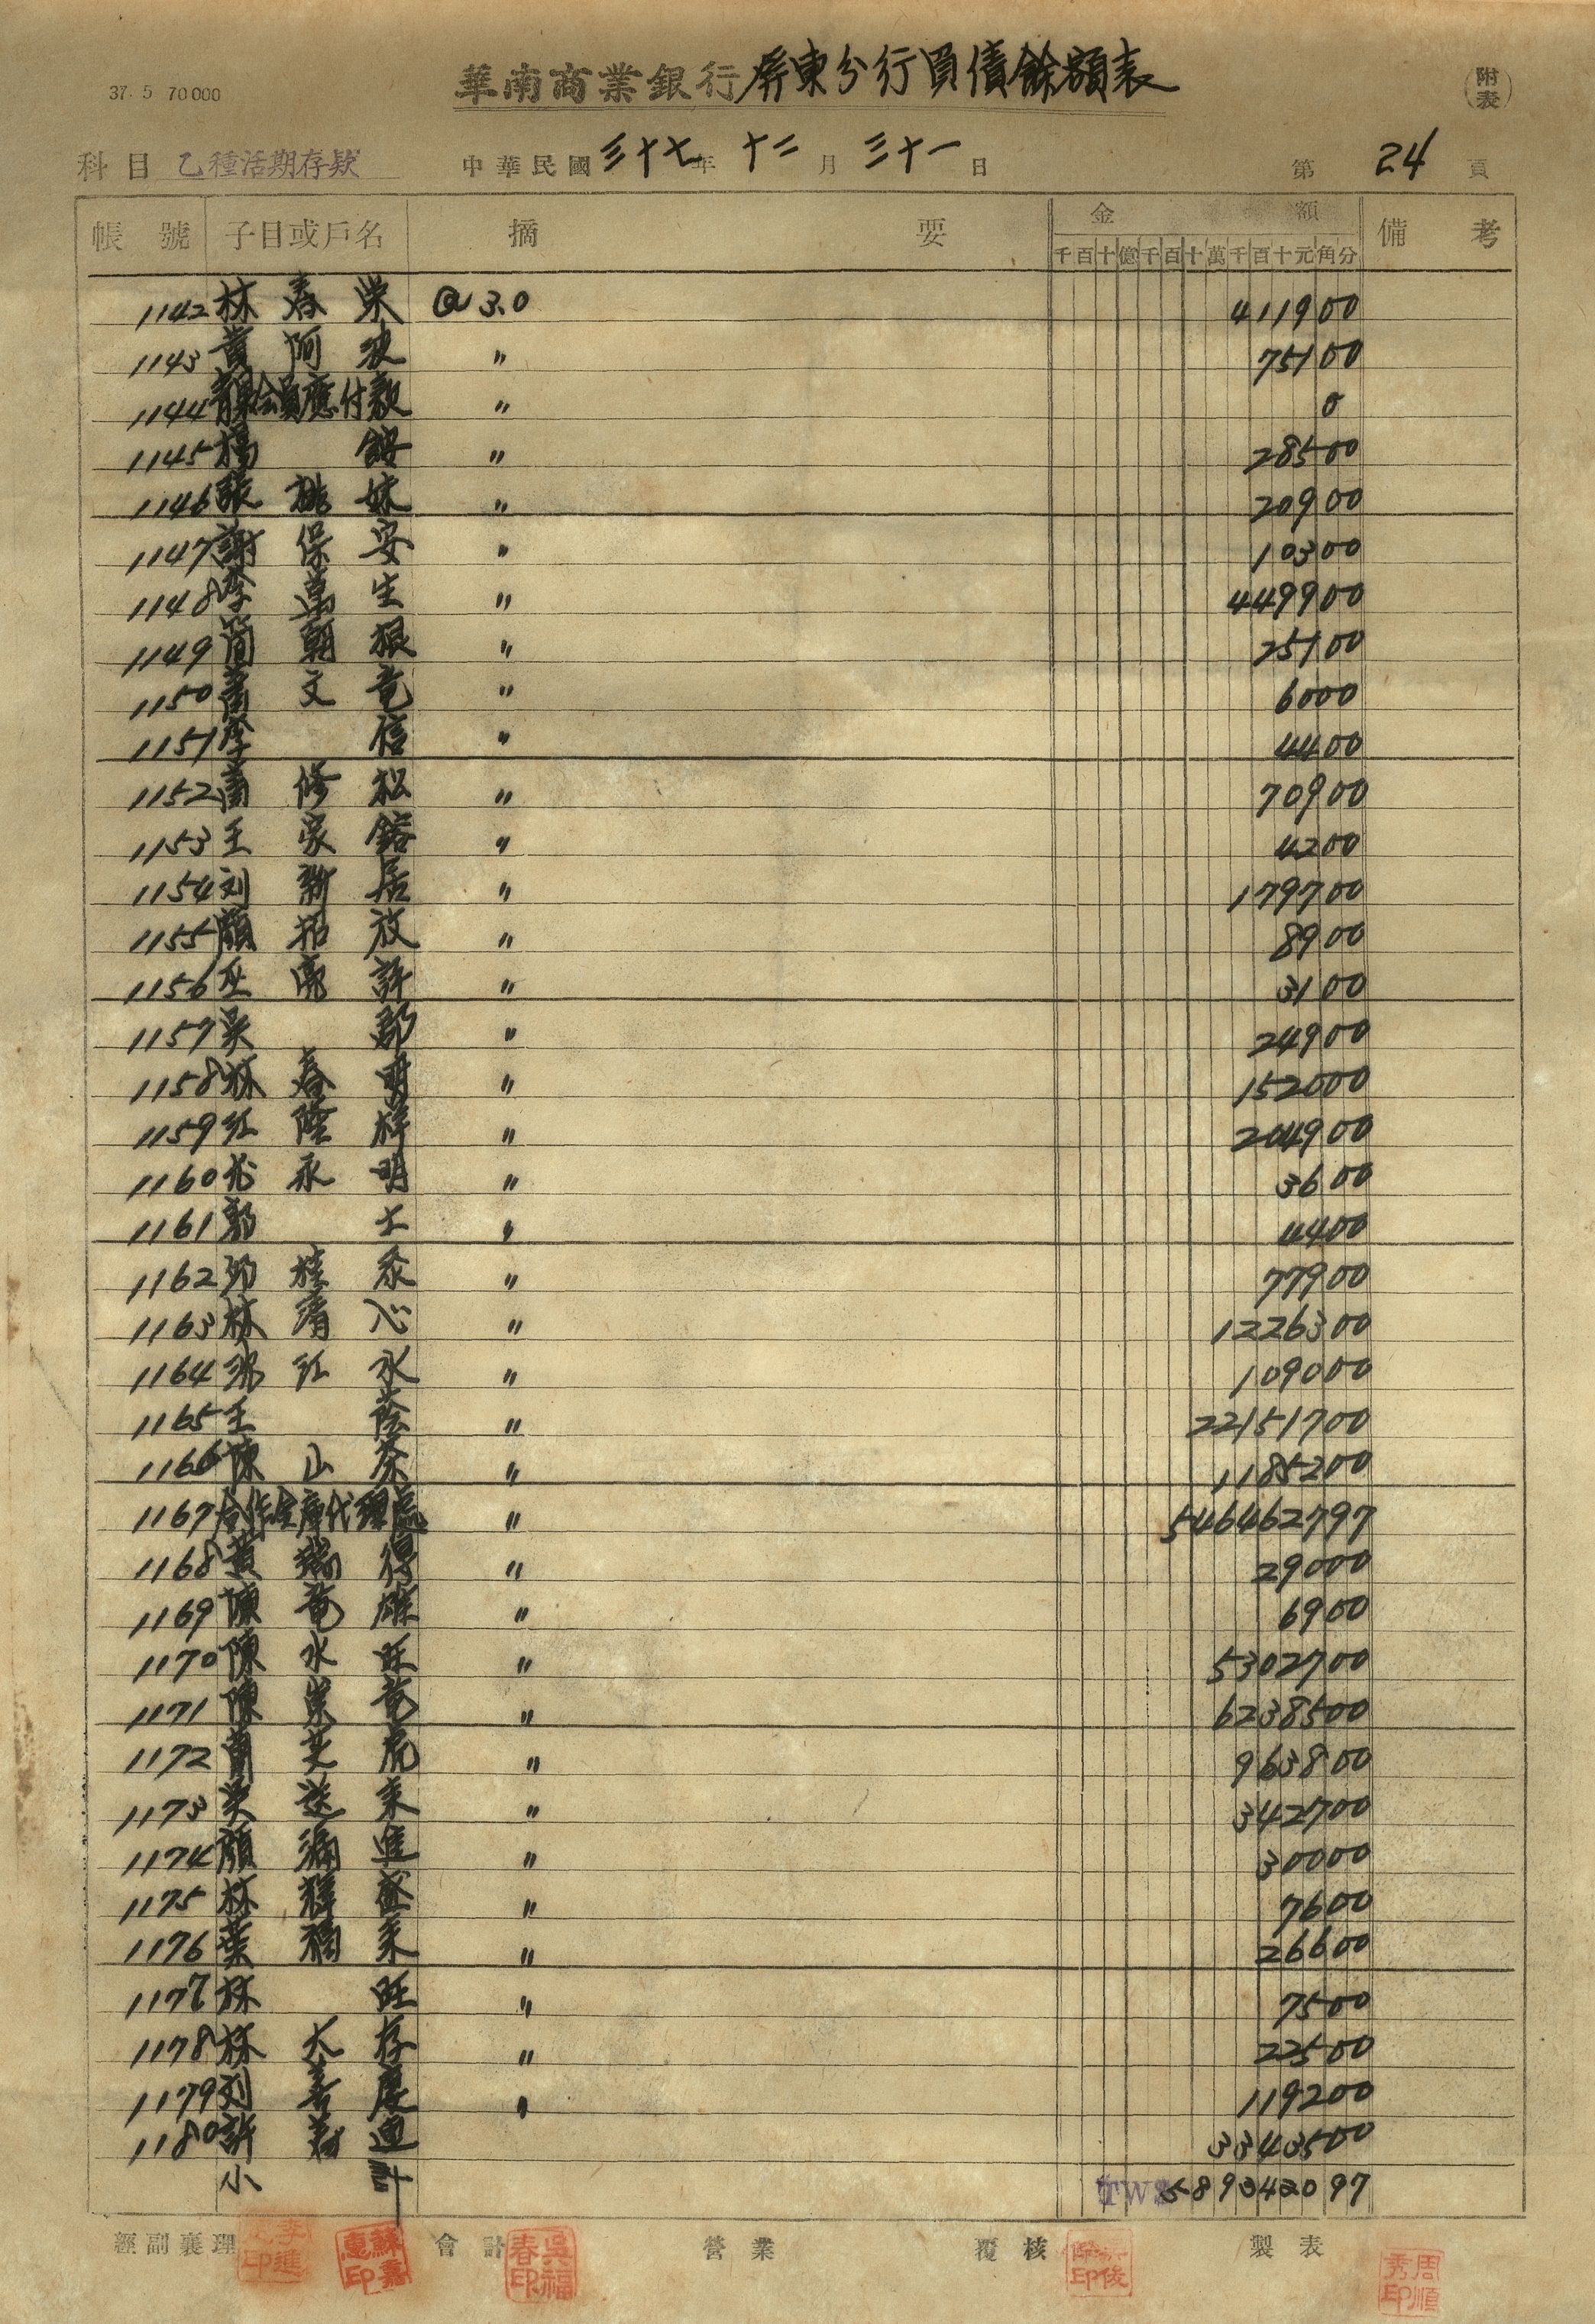 37. 5 70000
華南商業銀行屏東分行買債餘額表
(附表)
科目 乙種活期存款 中華民國三十七年十二月三十一日 第24頁
帳號 子目或戶名 摘要 金額 備考
千百十億千百十萬千百十元角分
1142 林春榮 @3.0 411900
1143 黃阿波 〃 75100
1144 會員應付款 〃 0
1145 楊 〃 28500
1146 張桃妹 〃 20900
1147 謝保安 〃 10300
1148 李萬生 〃 449900
1149 簡朝根 〃 25100
1150 蕭文竜 〃 6000
1151 李信 〃 4400
1152 蕭修松 〃 70900
1153 王家鎔 〃 4200
1154 刘新居 〃 179700
1155 顏招放 〃 8900
1156 巫許 〃 3100
1157 吳郡 〃 24900
1158 林春明 〃 152000
1159 江陸祥 〃 204900
1160 永明 〃 3600
1161 郭士 〃 4400
1162 桂 〃 77900
1163 林清心 〃 1226300
1164 江水 〃 109000
1165 王蔭 〃 22151700
1166 陳山茶 〃 1185200
1167 合作金庫代理處 〃 546462797
1168 黃瑞得 〃 29000
1169 陳竜雄 〃 6900
1170 陳水旺 〃 5302700
1171 陳崇竜 〃 6238500
1172 蕭芝虎 〃 963800
1173 吳送來 〃 342700
1174 顏滿進 〃 30000
1175 林輝盛 〃 7600
1176 葉福來 〃 26600
1177 林旺 〃 7500
1178 林大存 〃 22500
1179 刘善慶 〃 119200
1180 許莿迪 3343500
小計 TW$ 589342097
經副襄理 會計 營業 覆核 製表
李進印 蘇嘉惠印 吳福春印 俊印 周順秀印